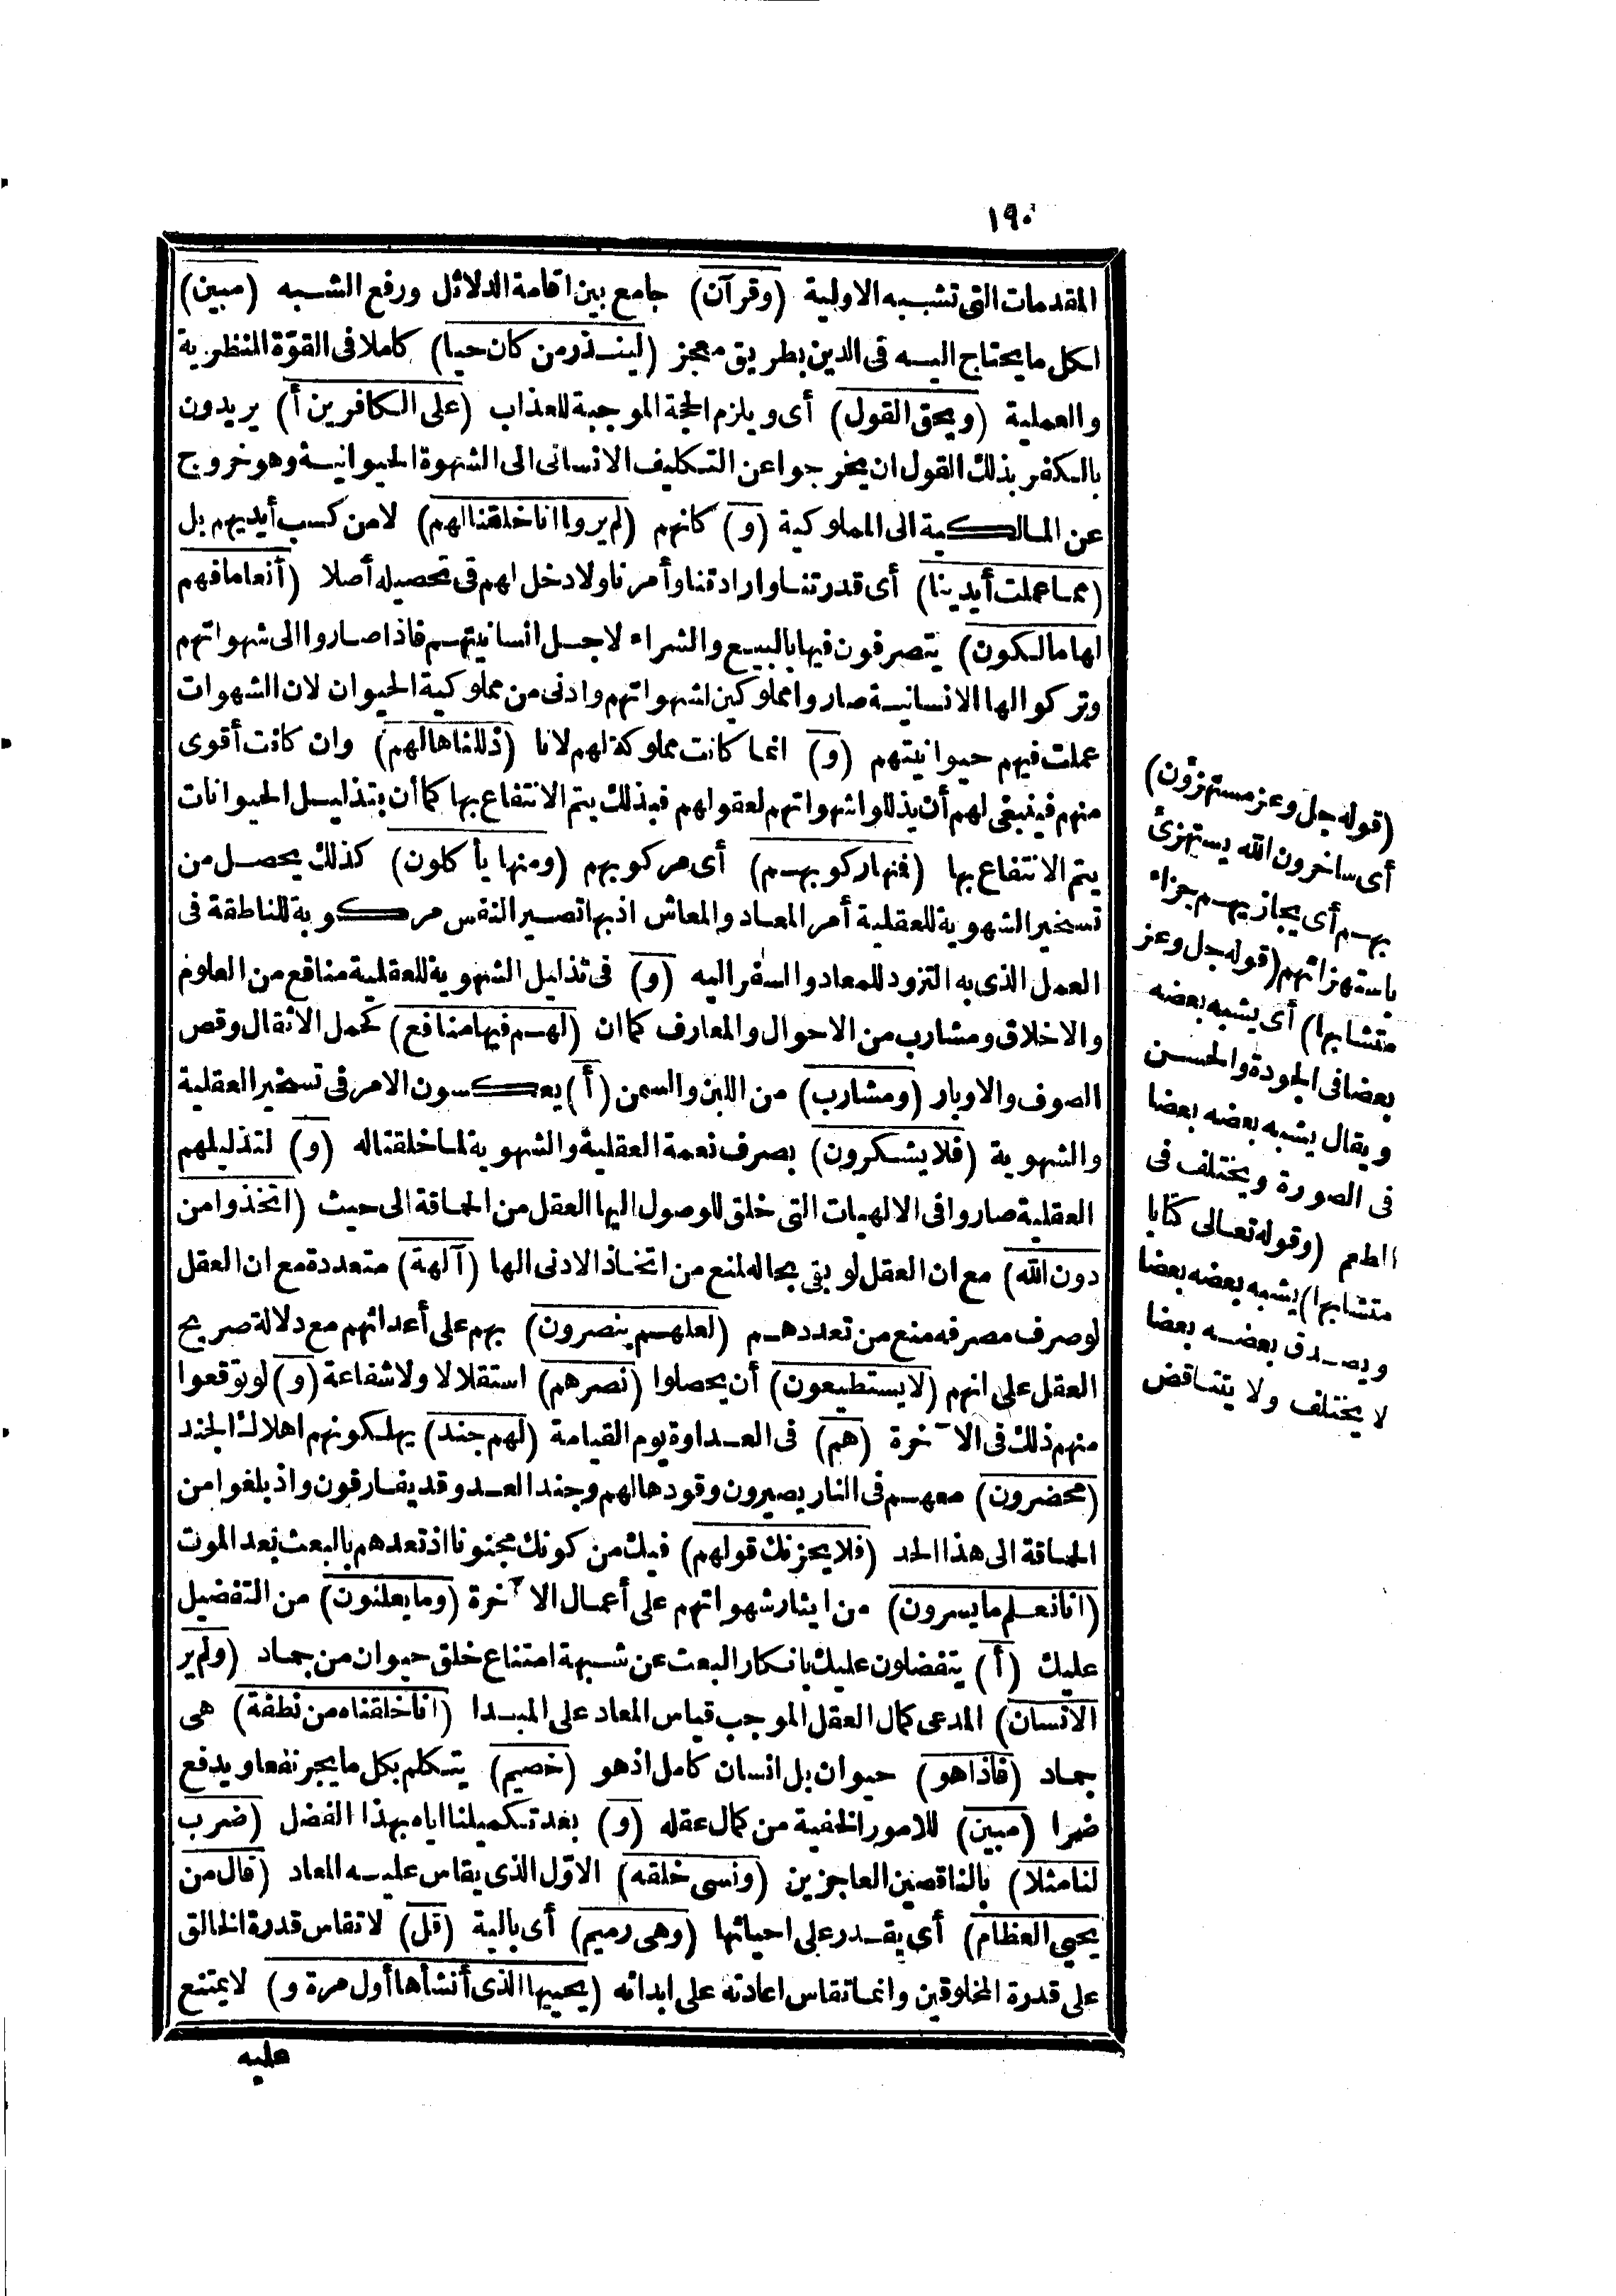 ١٩٠
المقدمات التى تشبه الاولية (وقرآن) جامع بين اقامة الدلائل ورفع الشبه (مبين)
لكل ما يحتاج اليه فى الدين بطريق معجز (لينذر من كان حيا) كاملا فى القوّة النظرية
والعملية (ويحق القول) أى ويلزم الحجة الموجبة للعذاب (على الكافرين أ) يريدون
بالكفر بذلك القول ان يخرجوا عن التكليف الانسانى الى الشهوة الحيوانية وهو خروج
عن المالكية الى المملوكية (و) كانهم (لم يروا انا خلقنا لهم) لا من كسب أيديهم بل
(مما عملت أيدينا) أى قدرتنا وارادتنا وأمرنا ولا دخل لهم فى تحصيله أصلا (أنعاما فهم
لها مالكون) يتصرفون فيها بالبيع والشراء لاجل انسانيتهم فاذا صاروا الى شهواتهم
وتركوا لها الانسانية صاروا مملوكين لشهواتهم وادنى من مملوكية الحيوان لان الشهوات
عملت فيهم حيوانيتهم (و) انما كانت مملوكة لهم لانا (ذللناها لهم) وان كانت أقوى
منهم فينبغى لهم أن يذللوا شهواتهم لعقولهم فبذلك يتم الانتفاع بها كما أن بتذليل الحيوانات
يتم الانتفاع بها (فنها ركوبهم) أى مركوبهم (ومنها يأكلون) كذلك يحصل من
تسخير الشهوية للعقلية أمر المعاد والمعاش اذ بها تصير النفس مركوبة للناطقة فى
العمل الذى به التزود للمعاد والسفر اليه (و) فى تذليل الشهوية للعقلية منافع من العلوم
والاخلاق ومشارب من الاحوال والمعارف كما ان (لهم فيها منافع) كحمل الاثقال وقص
الصوف والاوبار (ومشارب) من اللبن والسمن (أ) يعكسون الامر فى تسخير العقلية
والشهوية (فلا يشكرون) بصرف نعمة العقلية والشهوية لما خلقتاله (و) لتذليلهم
العقلية صاروا فى الالهيات التى خلق للوصول اليها العقل من الحماقة الى حيث (اتخذوا من
دون الله) مع ان العقل لو بقى بحاله لمنع من اتخاذ الادنى الها (آلهة) متعددة مع ان العقل
لو صرف مصرفه منع من تعددهم (لعلهم ينصرون) بهم على أعدائهم مع دلالة صريح
العقل على انهم (لا يستطيعون) أن يحصلوا (نصرهم) استقلالا ولا شفاعة (و) لو توقعوا
منهم ذلك فى الآخرة (هم) فى العداوة يوم القيامة (لهم جند) يهلكونهم اهلاك الجند
(محضرون) معهم فى النار يصيرون وقودها لهم وجند العدو قد يفارقون واذ بلغوا من
الحماقة الى هذا الحد (فلا يحزنك قولهم) فيك من كونك مجنونا اذ تعدهم بالبعث بعد الموت
(انا نعلم ما يسرون) من ايثار شهواتهم على أعمال الآخرة (وما يعلنون) من التفضيل
عليك (أ) يتفضلون عليك بانكار البعث عن شبهة امتناع خلق حيوان من جماد (ولم ير
الانسان) المدعى كمال العقل الموجب قياس المعاد على المبدا (انا خلقناه من نطفة) هى
جماد (فاذا هو) حيوان بل انسان كامل اذ هو (خصيم) يتكلم بكل ما يجر نفعا ويدفع
ضرا (مبين) للامور الخفية من كمال عقله (و) بعد تكميلنا اياه بهذا الفضل (ضرب
لنا مثلا) بالناقصين العاجزين (ونسى خلقه) الاوّل الذى يقاس عليه المعاد (قال من
يحيى العظام) أى يقدر على احيائها (وهى رميم) أى بالية (قل) لا تقاس قدرة الخالق
على قدرة المخلوقين وانما تقاس اعادته على ابدائه (يحييها الذى أنشأها أول مرة و) لا يمتنع
عليه
(قوله جل وعز مستهزؤن)
أى ساخرون الله يستهزئ
بهم أى يجازيهم جزاء
باستهزائهم (قوله جل وعز
متشابها) أى يشبه بعضه
بعضا فى الجودة والحسن
ويقال يشبه بعضه بعضا
فى الصورة ويختلف فى
الطعم (وقوله تعالى كتابا
متشابها) يشبه بعضه بعضا
ويصدق بعضه بعضا
لا يختلف ولا يتناقض